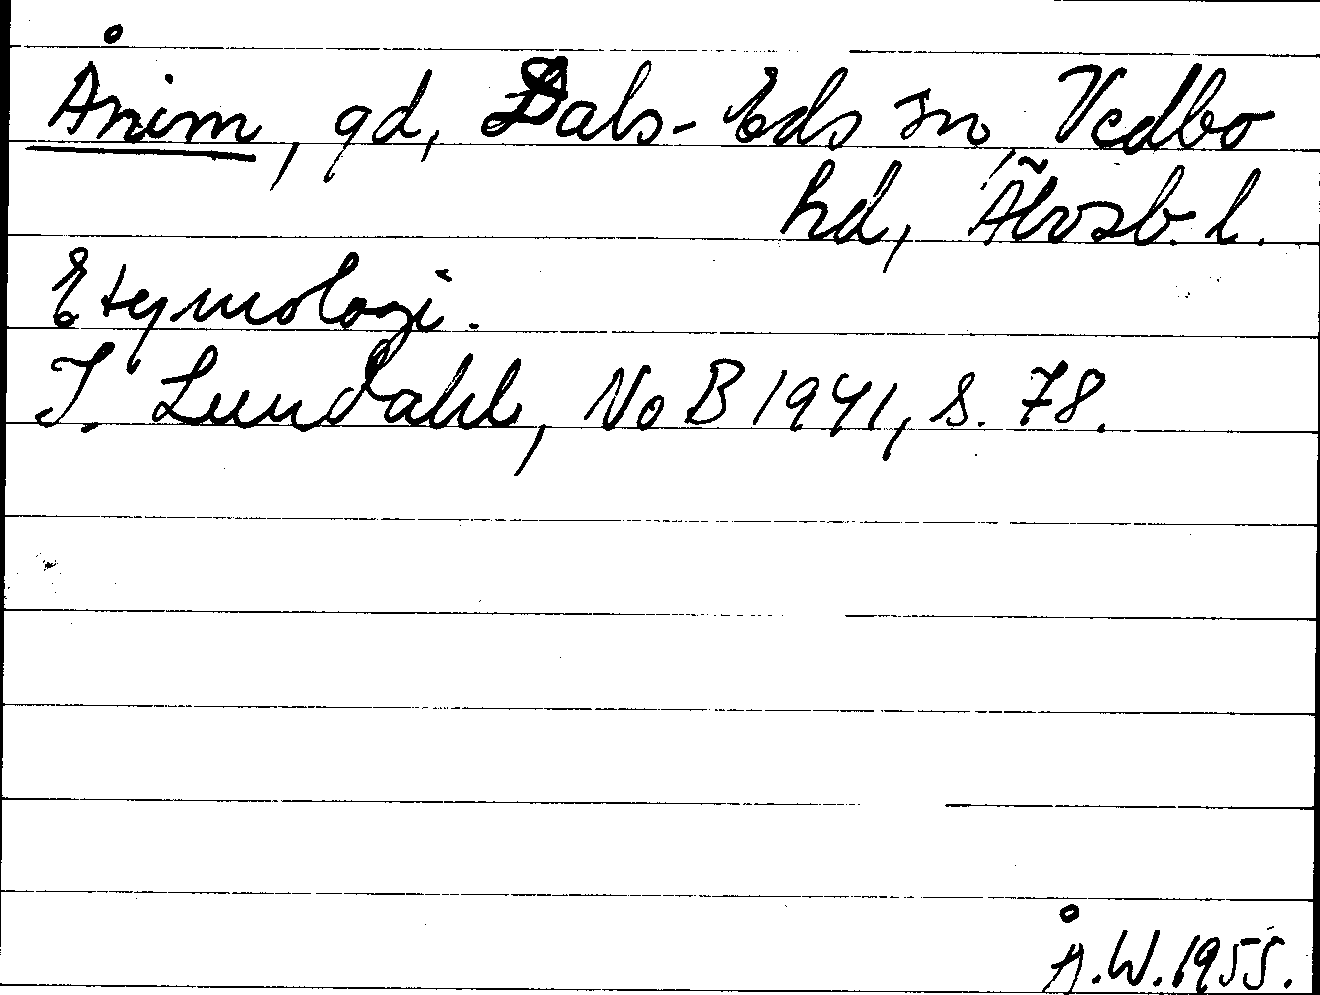 Ånim, gd, Dals-Eds sn, Vedbo
hd, Älvsb. l.
Etymologi.
I. Lundahl, NoB 1941, s. 78.
Å.W. 1955.